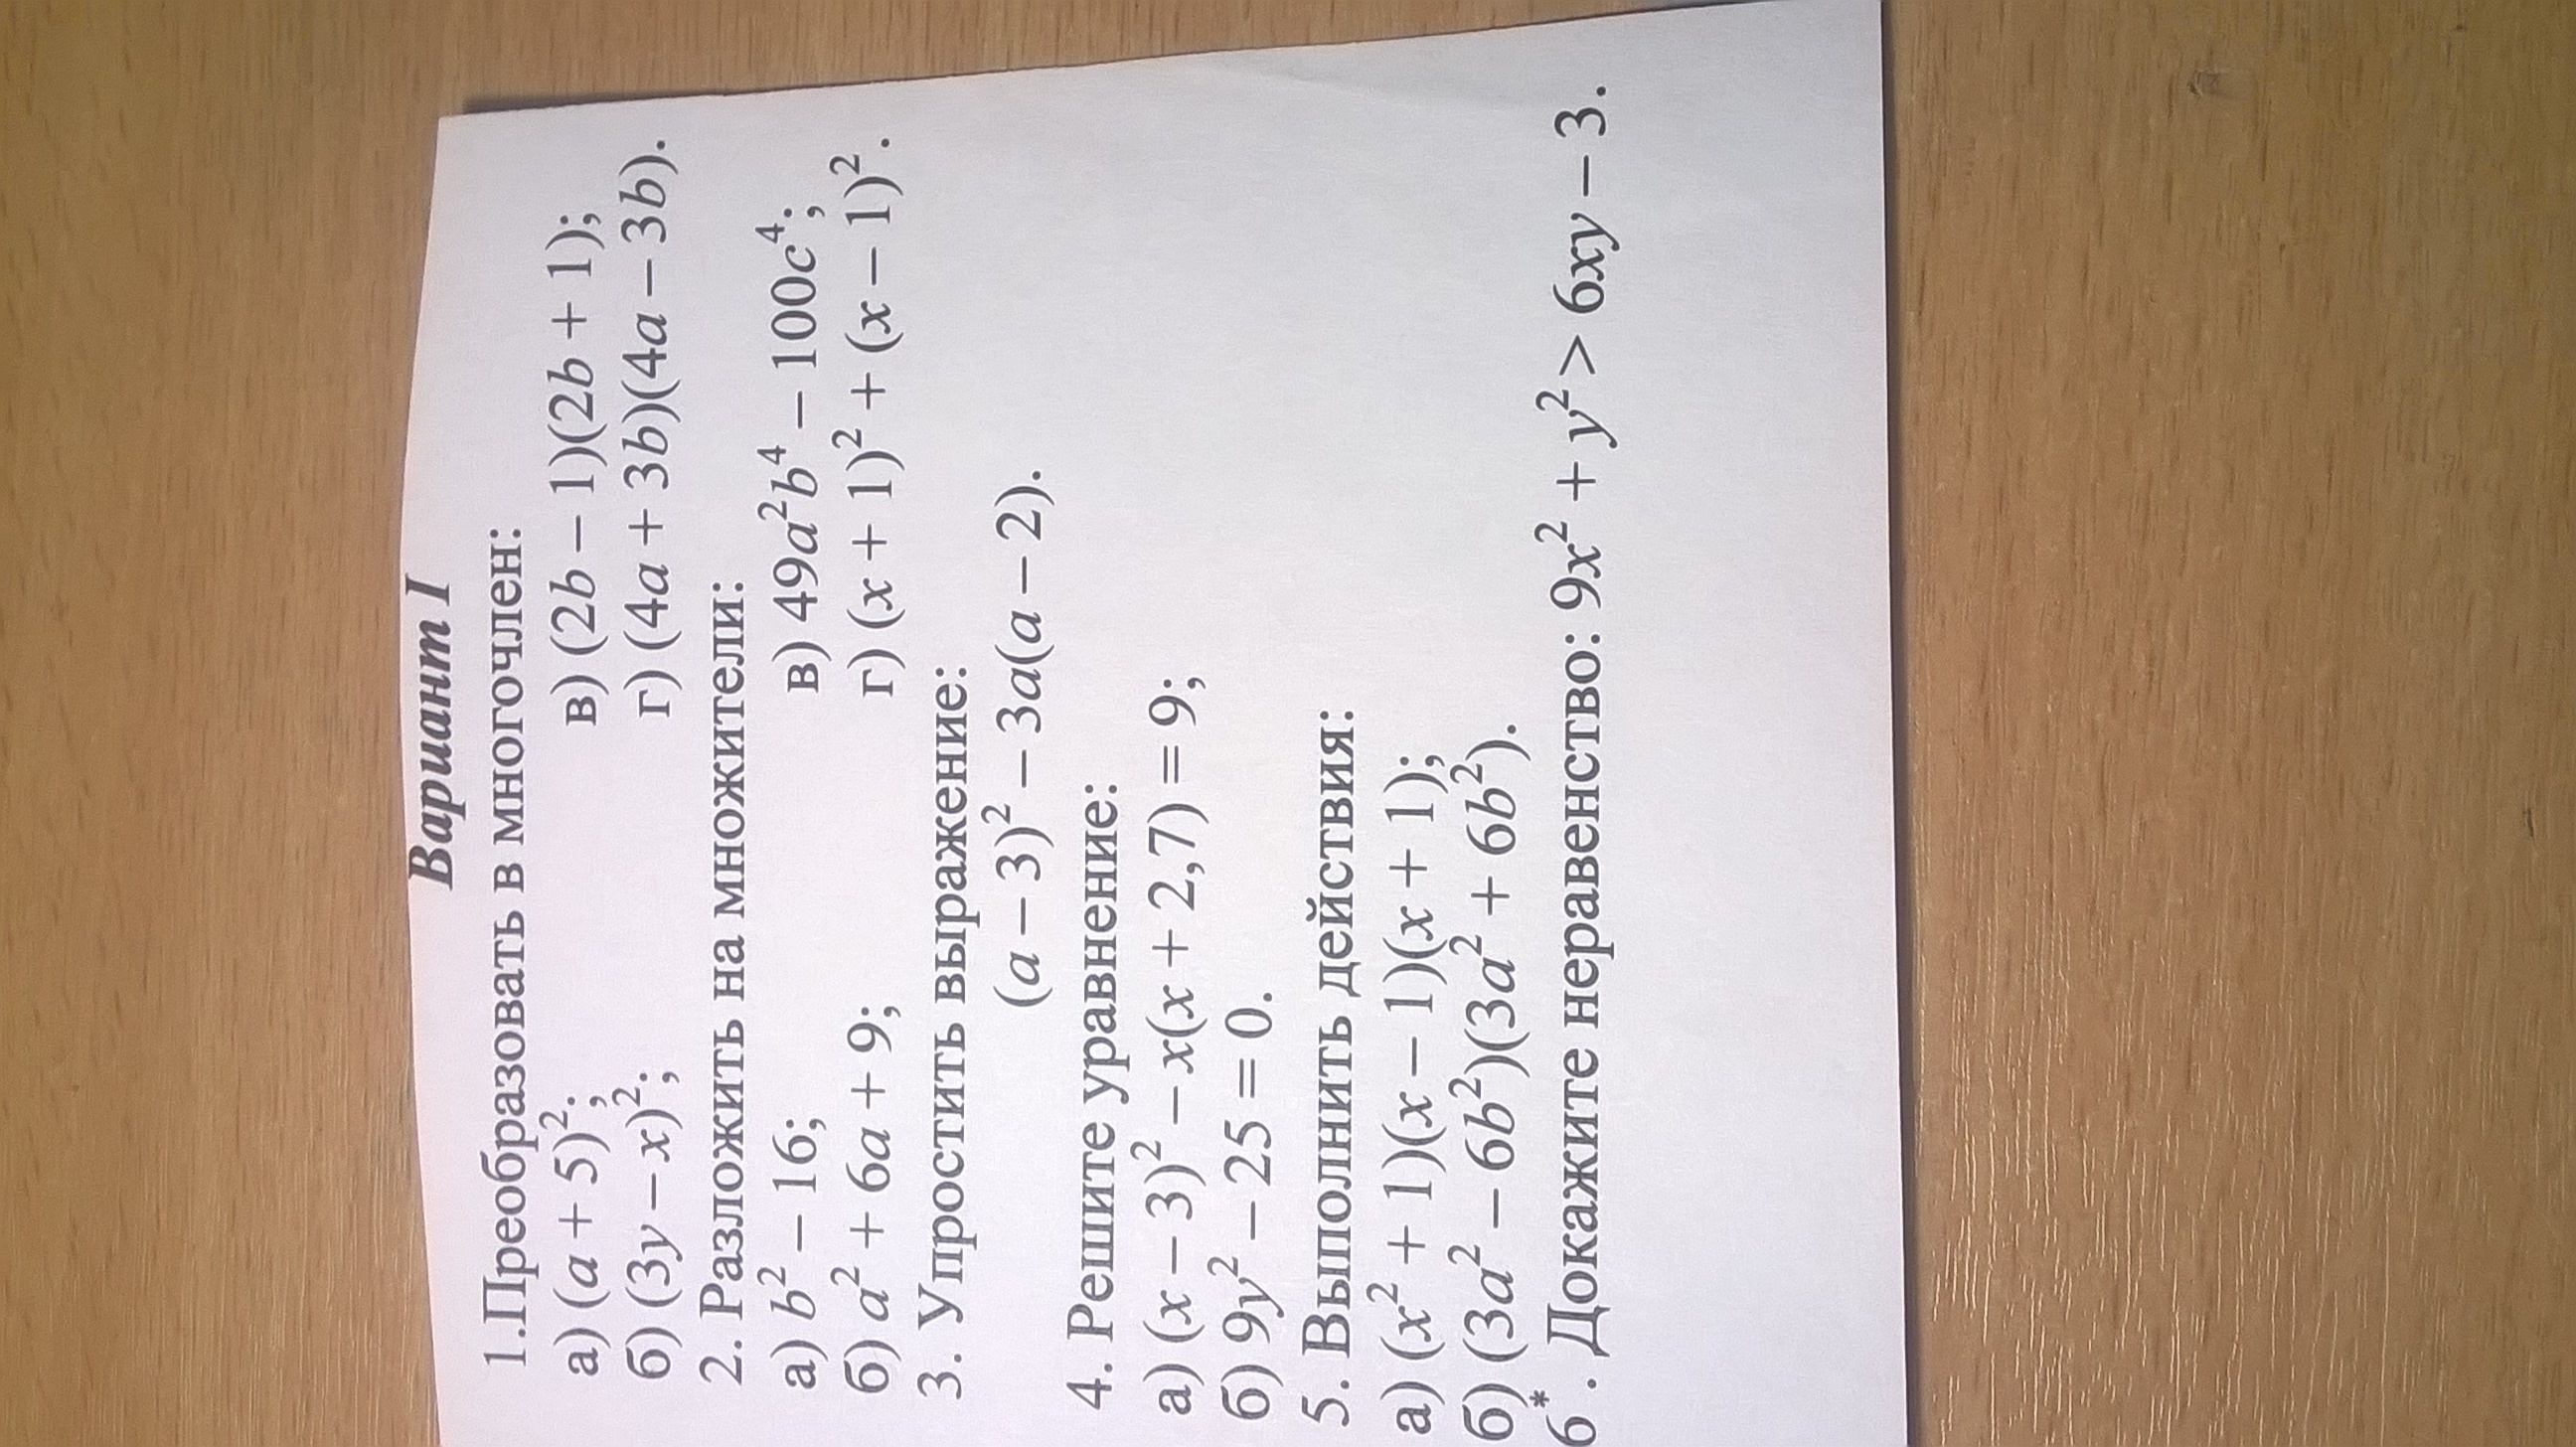 Вариант I
1.Преобразовать в многочлен:
а) (a + 5)²; в) (2b − 1)(2b + 1);
б) (3y − x)²; г) (4a + 3b)(4a − 3b).
2. Разложить на множители:
а) b² − 16; в) 49a²b⁴ − 100c⁴;
б) a² + 6a + 9; г) (x + 1)² + (x − 1)².
3. Упростить выражение:
(a − 3)² − 3a(a − 2).
4. Решите уравнение:
а) (x − 3)² − x(x + 2,7) = 9;
б) 9y² − 25 = 0.
5. Выполнить действия:
а) (x² + 1)(x − 1)(x + 1);
б) (3a² − 6b²)(3a² + 6b²).
6*. Докажите неравенство: 9x² + y² > 6xy − 3.